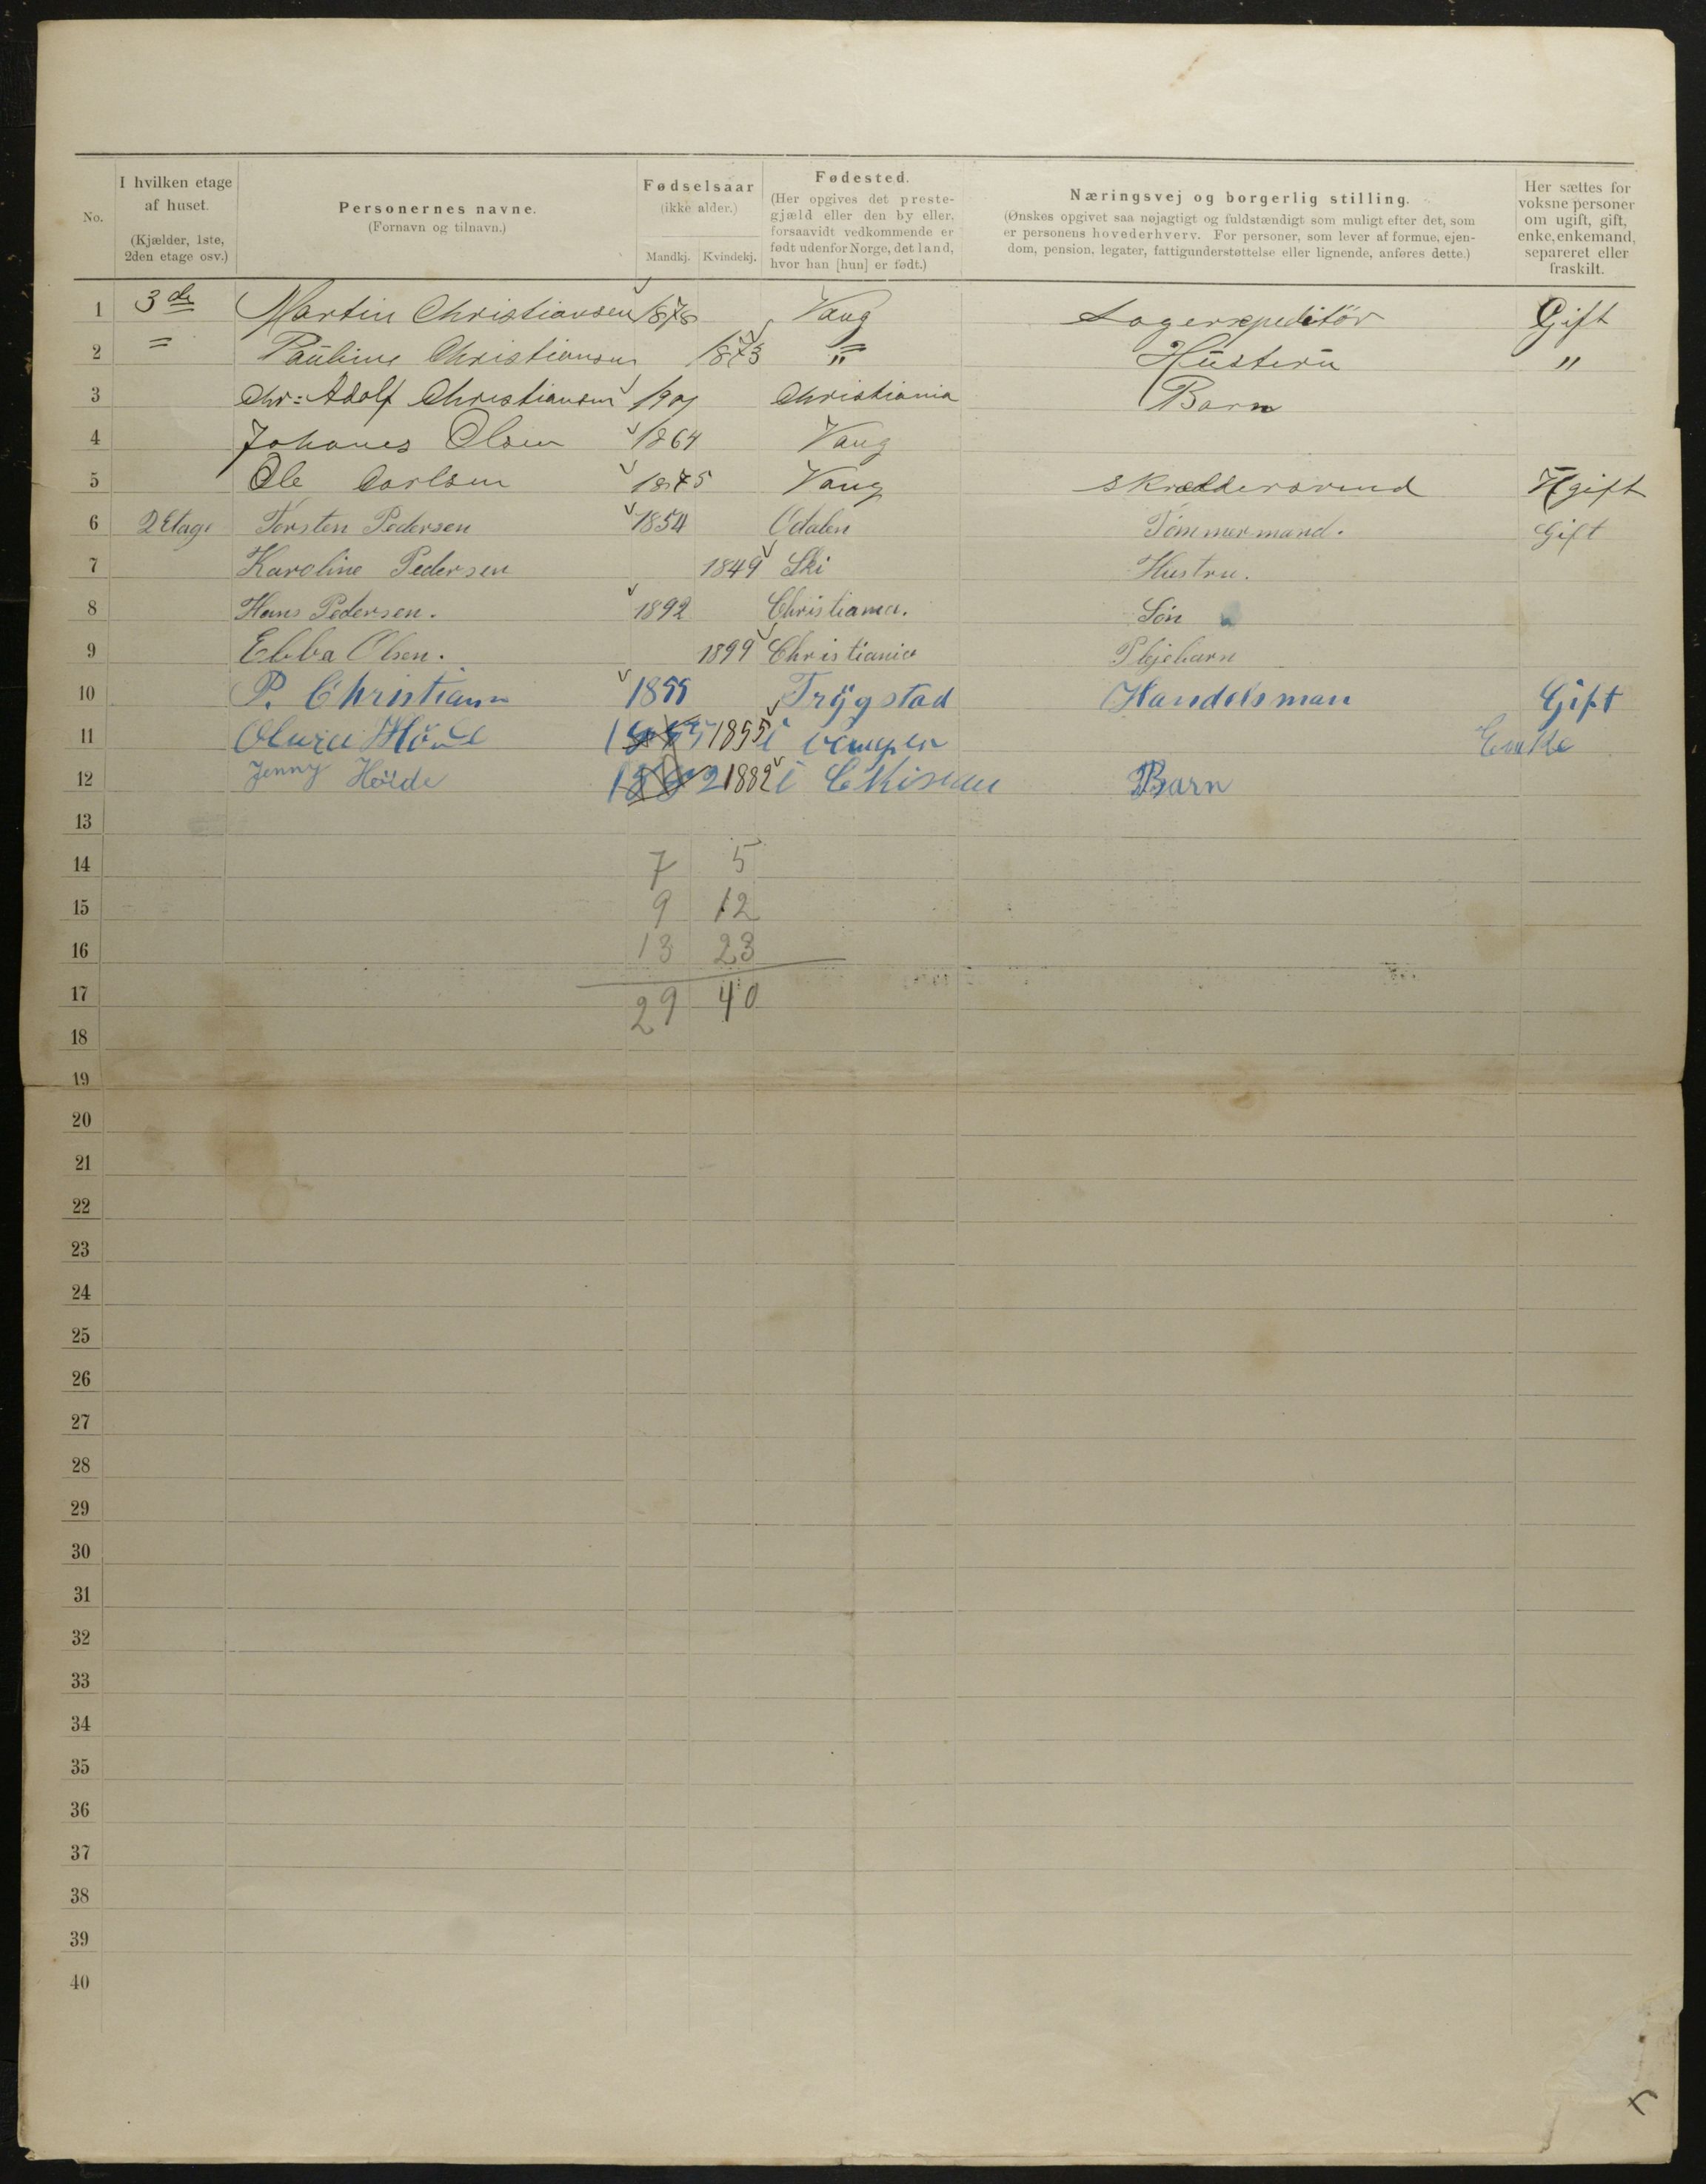 No.
I hvilken etage af huset. (Kjælder, 1ste, 2den etage osv.)
Personernes navne. (Fornavn og tilnavn.)
Fødselsaar (ikke alder.) Mandkj. Kvindekj.
Fødested. (Her opgives det prestegjæld eller den by eller, forsaavidt vedkommende er født udenfor Norge, det land, hvor han [hun] er født.)
Næringsvej og borgerlig stilling. (Ønskes opgivet saa nøjagtigt og fuldstændigt som muligt efter det, som er personens hovederhverv. For personer, som lever af formue, ejendom, pension, legater, fattigunderstøttelse eller lignende, anføres dette.)
Her sættes for voksne personer om ugift, gift, enke, enkemand, separeret eller fraskilt.
1 3de Martin Christiansen 1878 Vang Lagerexpeditör Gift
2 = Pauline Christiansen 1873 " Hustru "
3 Chr: Adolf Christiansen 1901 Christiania Barn
4 Johanes Olsen 1864 Vang
5 Ole Carlsen 1875 Vang Skræddersvend Ugift
6 2 Etage Torsten Pedersen 1854 Odalen Tømmermand. Gift
7 Karoline Pedersen 1849 Ski Hustru.
8 Hans Pedersen. 1892 Christiania. Søn
9 Ebba Olsen. 1899 Christiania Plejebarn
10 P. Christiansen 1855 Trögstad Handelsman Gift
11 1855 i Enke
12 Jenny Höide 1882 i Barn
13
14 7 5
15 9 12
16 13 23
17 29 40
18
19
20
21
22
23
24
25
26
27
28
29
30
31
32
33
34
35
36
37
38
39
40